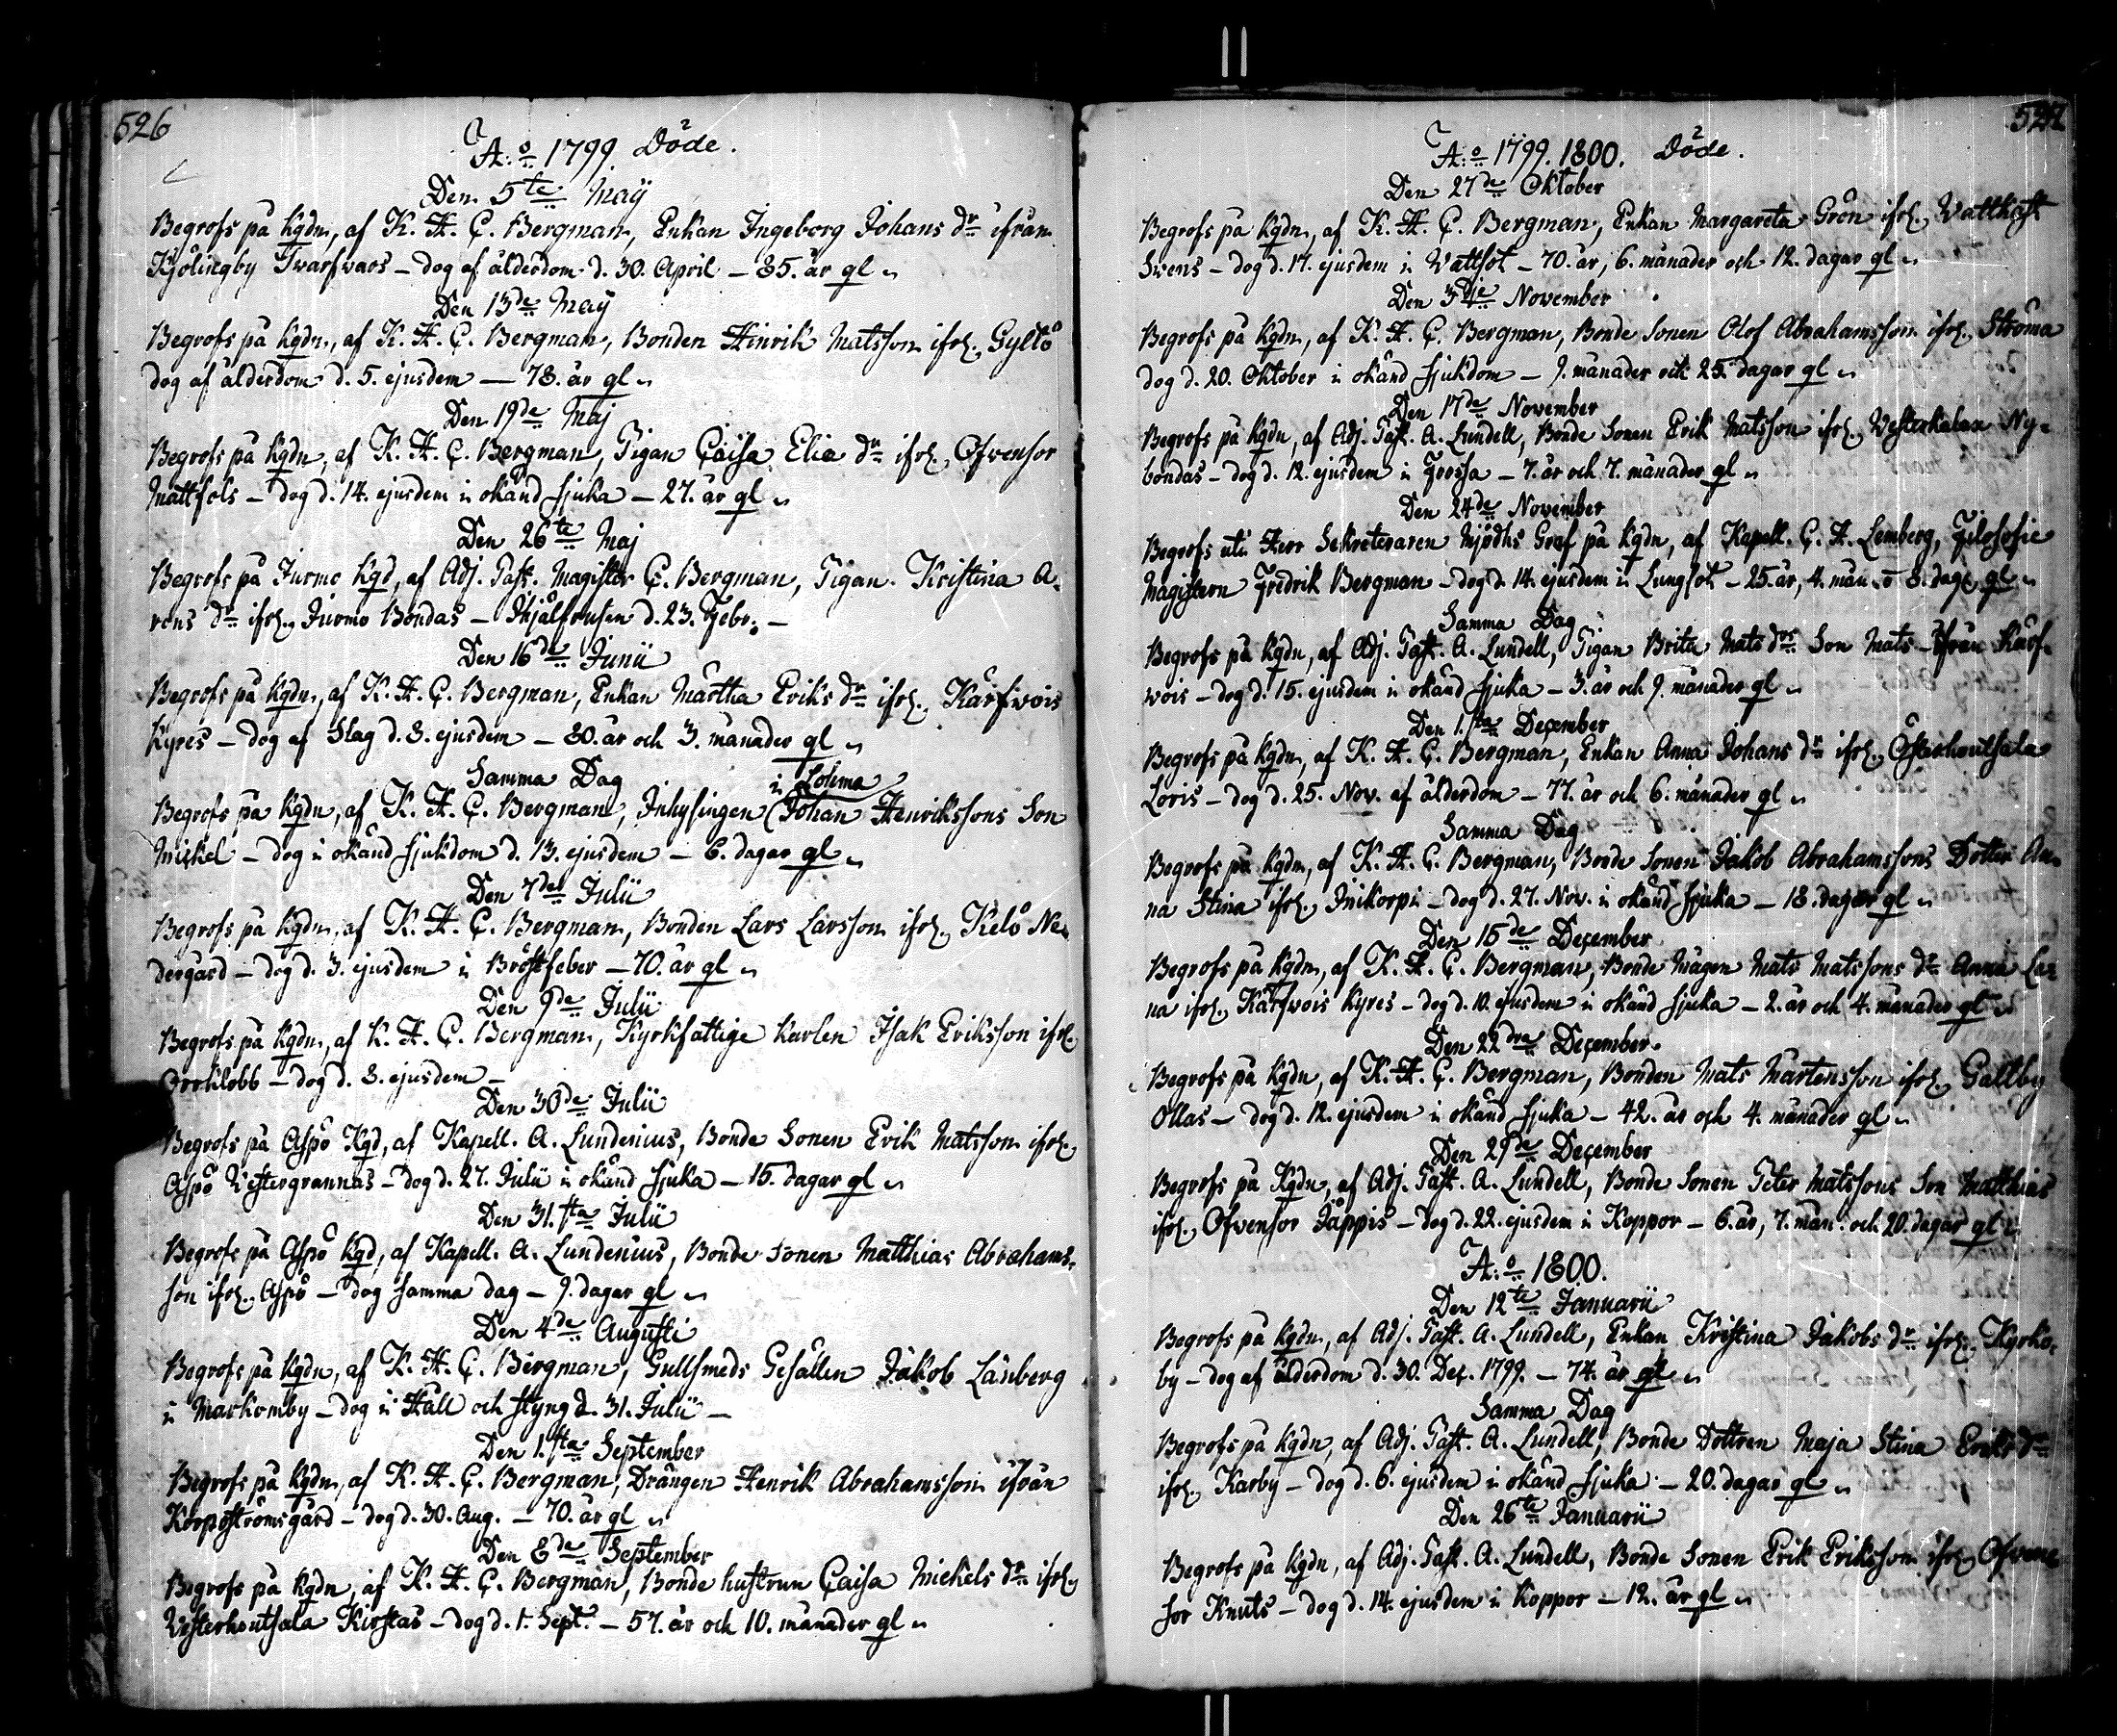 526
A:o 1799. Döde.
Den 5te Maÿ
Begrofs på Kgdn, af K. H. C. Bergman, Enkan Ingeborg Johans dr ifrån
Kyölingby Twarfwars – dog af ålderdom d. 30. April – 85. år gl
Den 13de Maÿ
Begrofs på Kgdn, af K. H. C. Bergman, Bonden Hinrik Matsson ifr. Gyltö
dog af ålderdom d. 5. ejusdem – 78. år gl
Den 19de Maj
Begrofs på Kgdn, af K. H. C. Bergman, Pigan Caisa Eliæ dr ifr. Ofvensor
Mattfols – dog d. 14. ejusdem i okänd sjuka – 27. år gl
Den 26te Maj
Begrofs på Jurmo Kgd, af Adj. Past. Magister C. Bergman, Pigan Kristina A-
rons dr ifr. Jurmo Bondas – Ihjälfrusen d. 23. Febr. –
Den 16de Junii
Begrofs på Kgdn, af K. H. C. Bergman, Enkan Martha Eriks dr ifr. Kårfwois
Kyres – dog af Slag d. 8. ejusdem – 80. år och 3. månader gl
Samma Dag
Begrofs på Kgdn, af K. H. C. Bergman, Inhysingen (Johan Henrikssons Son
i Lohma
Mickel – dog i okänd sjukdom d. 13. ejusdem – 6. dagar gl
Den 7de Julii
Begrofs på Kgdn, af K. H. C. Bergman, Bonden Lars Larsson ifr. Kelö Ne-
dergård – dog d. 3. ejusdem i Bröstfeber – 70. år gl
Den 9de Julii
Begrofs på Kgdn, af K. H. C. Bergman, Kyrkfattige karlen Isak Eriksson ifr.
Orrklobb – dog d. 8. ejusdem –
Den 30de Julii
Begrofs på Aspö Kgd, af Kapell. A. Lundenius, Bonde Sonen Erik Matsson ifr.
Aspö Westergrannas – dog d. 27. Julii i okänd sjuka – 15. dagar gl
Den 31.sta Julii
Begrofs på Aspö Kgd, af Kapell. A. Lundenius, Bonde Sonen Matthias Abrahams-
son ifr. Aspö – dog samma dag – 9. dagar gl
Den 4de Augusti
Begrofs på Kgdn, af K. H. C. Bergman, Gullsmeds Gesällen Jakob Länberg
i Markomby – dog i Håll och styng d. 31. Julii –
Den 1.sta September
Begrofs på Kgdn, af K. H. C. Bergman, Drängen Henrik Abrahamsson ifrån
Korpoströmsgård – dog d. 30. Aug. – 70. år gl
Den 8de September
Begrofs på Kgdn, af K. H. C. Bergman, Bonde hustrun Caisa Mickels dr ifr.
Westerhoutsala Kirstas – dog d. 1. Sept. – 57. år och 10. månader gl
527
A:o 1799. 1800. Döde.
Den 27de Oktober
Begrofs på Kgdn, af K. H. C. Bergman, Enkan Margareta Grön ifr. Wattkast
Swens – dog d. 17. ejusdem i Wattsot – 70. år, 6. månader och 12. dagar gl
Den 3die November
Begrofs på Kgdn, af K. H. C. Bergman, Bonde Sonen Olof Abrahamsson ifr. Ströma
dog d. 20. Oktober i okänd sjukdom – 9. månader och 25. dagar gl
Den 17de November
Begrofs på Kgdn, af Adj. Past. A. Lundell, Bonde Sonen Erik Matsson ifr. Westerkalax Ny-
bondas – dog d. 12. ejusdem i Frossa – 7. år och 7. månader gl
Den 24de November
Begrofs uti Herr Sekreteraren Mjödhs Graf på Kgdn, af Kapell. C. H. Lemberg, Filosofie
Magistern Fredrik Bergman – dog d. 14. ejusdem i Lungsot – 25. år, 4. mån. o 8. dag. gl
Samma Dag
Begrofs på Kgdn, af Adj. Past. A. Lundell, Pigan Brita Mats drs Son Mats ifrån Kårf-
wois – dog d. 15. ejusdem i okänd sjuka – 3. år och 9. månader gl
Den 1.sta December
Begrofs på Kgdn, af K. H. C. Bergman, Enkan Anna Johans dr ifr. Österhoutsala
Loris – dog d. 25. Nov. af ålderdom – 77. år och 6. månader gl
Samma Dag
Begrofs på Kgdn, af K. H. C. Bergman, Bonde Sonen Jakob Abrahamssons Dotter An-
na Stina ifr. Inikorpi – dog d. 27. Nov. i okänd sjuka – 18. dagar gl
Den 15de December
Begrofs på Kgdn, af K. H. C. Bergman, Bonde Mågen Mats Matssons dr Anna Ca-
na ifr. Kårfwois Kyres – dog d. 10. ejusdem i okänd sjuka – 2. år och 4. månader gl
Den 22dra December
Begrofs på Kgdn, af K. H. C. Bergman, Bonden Mats Mårtensson ifr. Galtby
Ollas – dog d. 12. ejusdem i okänd sjuka – 42. år och 4. månader gl
Den 29de December
Begrofs på Kgdn, af Adj. Past. A. Lundell, Bonde Sonen Peter Matssons Son Matthias
ifr. Ofvensor Jäppis – dog d. 22. ejusdem i Koppor – 6. år, 7. mån. och 20. dagar gl
A:o 1800.
Den 12te Januarii
Begrofs på Kgdn, af Adj. Past. A. Lundell, Enkan Kristina Jakobs dr ifr. Kyrko-
by – dog af ålderdom d. 30. Dec. 1799. – 74. år gl
Samma Dag
Begrofs på Kgdn, af Adj. Past. A. Lundell, Bonde Dottren Maja Stina Eriks dr
ifr. Karby – dog d. 6. ejusdem i okänd sjuka – 20. dagar gl
Den 26te Januarii
Begrofs på Kgdn, af Adj. Past. A. Lundell, Bonde Sonen Erik Eriksson ifr. Ofven-
sor Knuts – dog d. 14. ejusdem i Koppor – 12. år gl